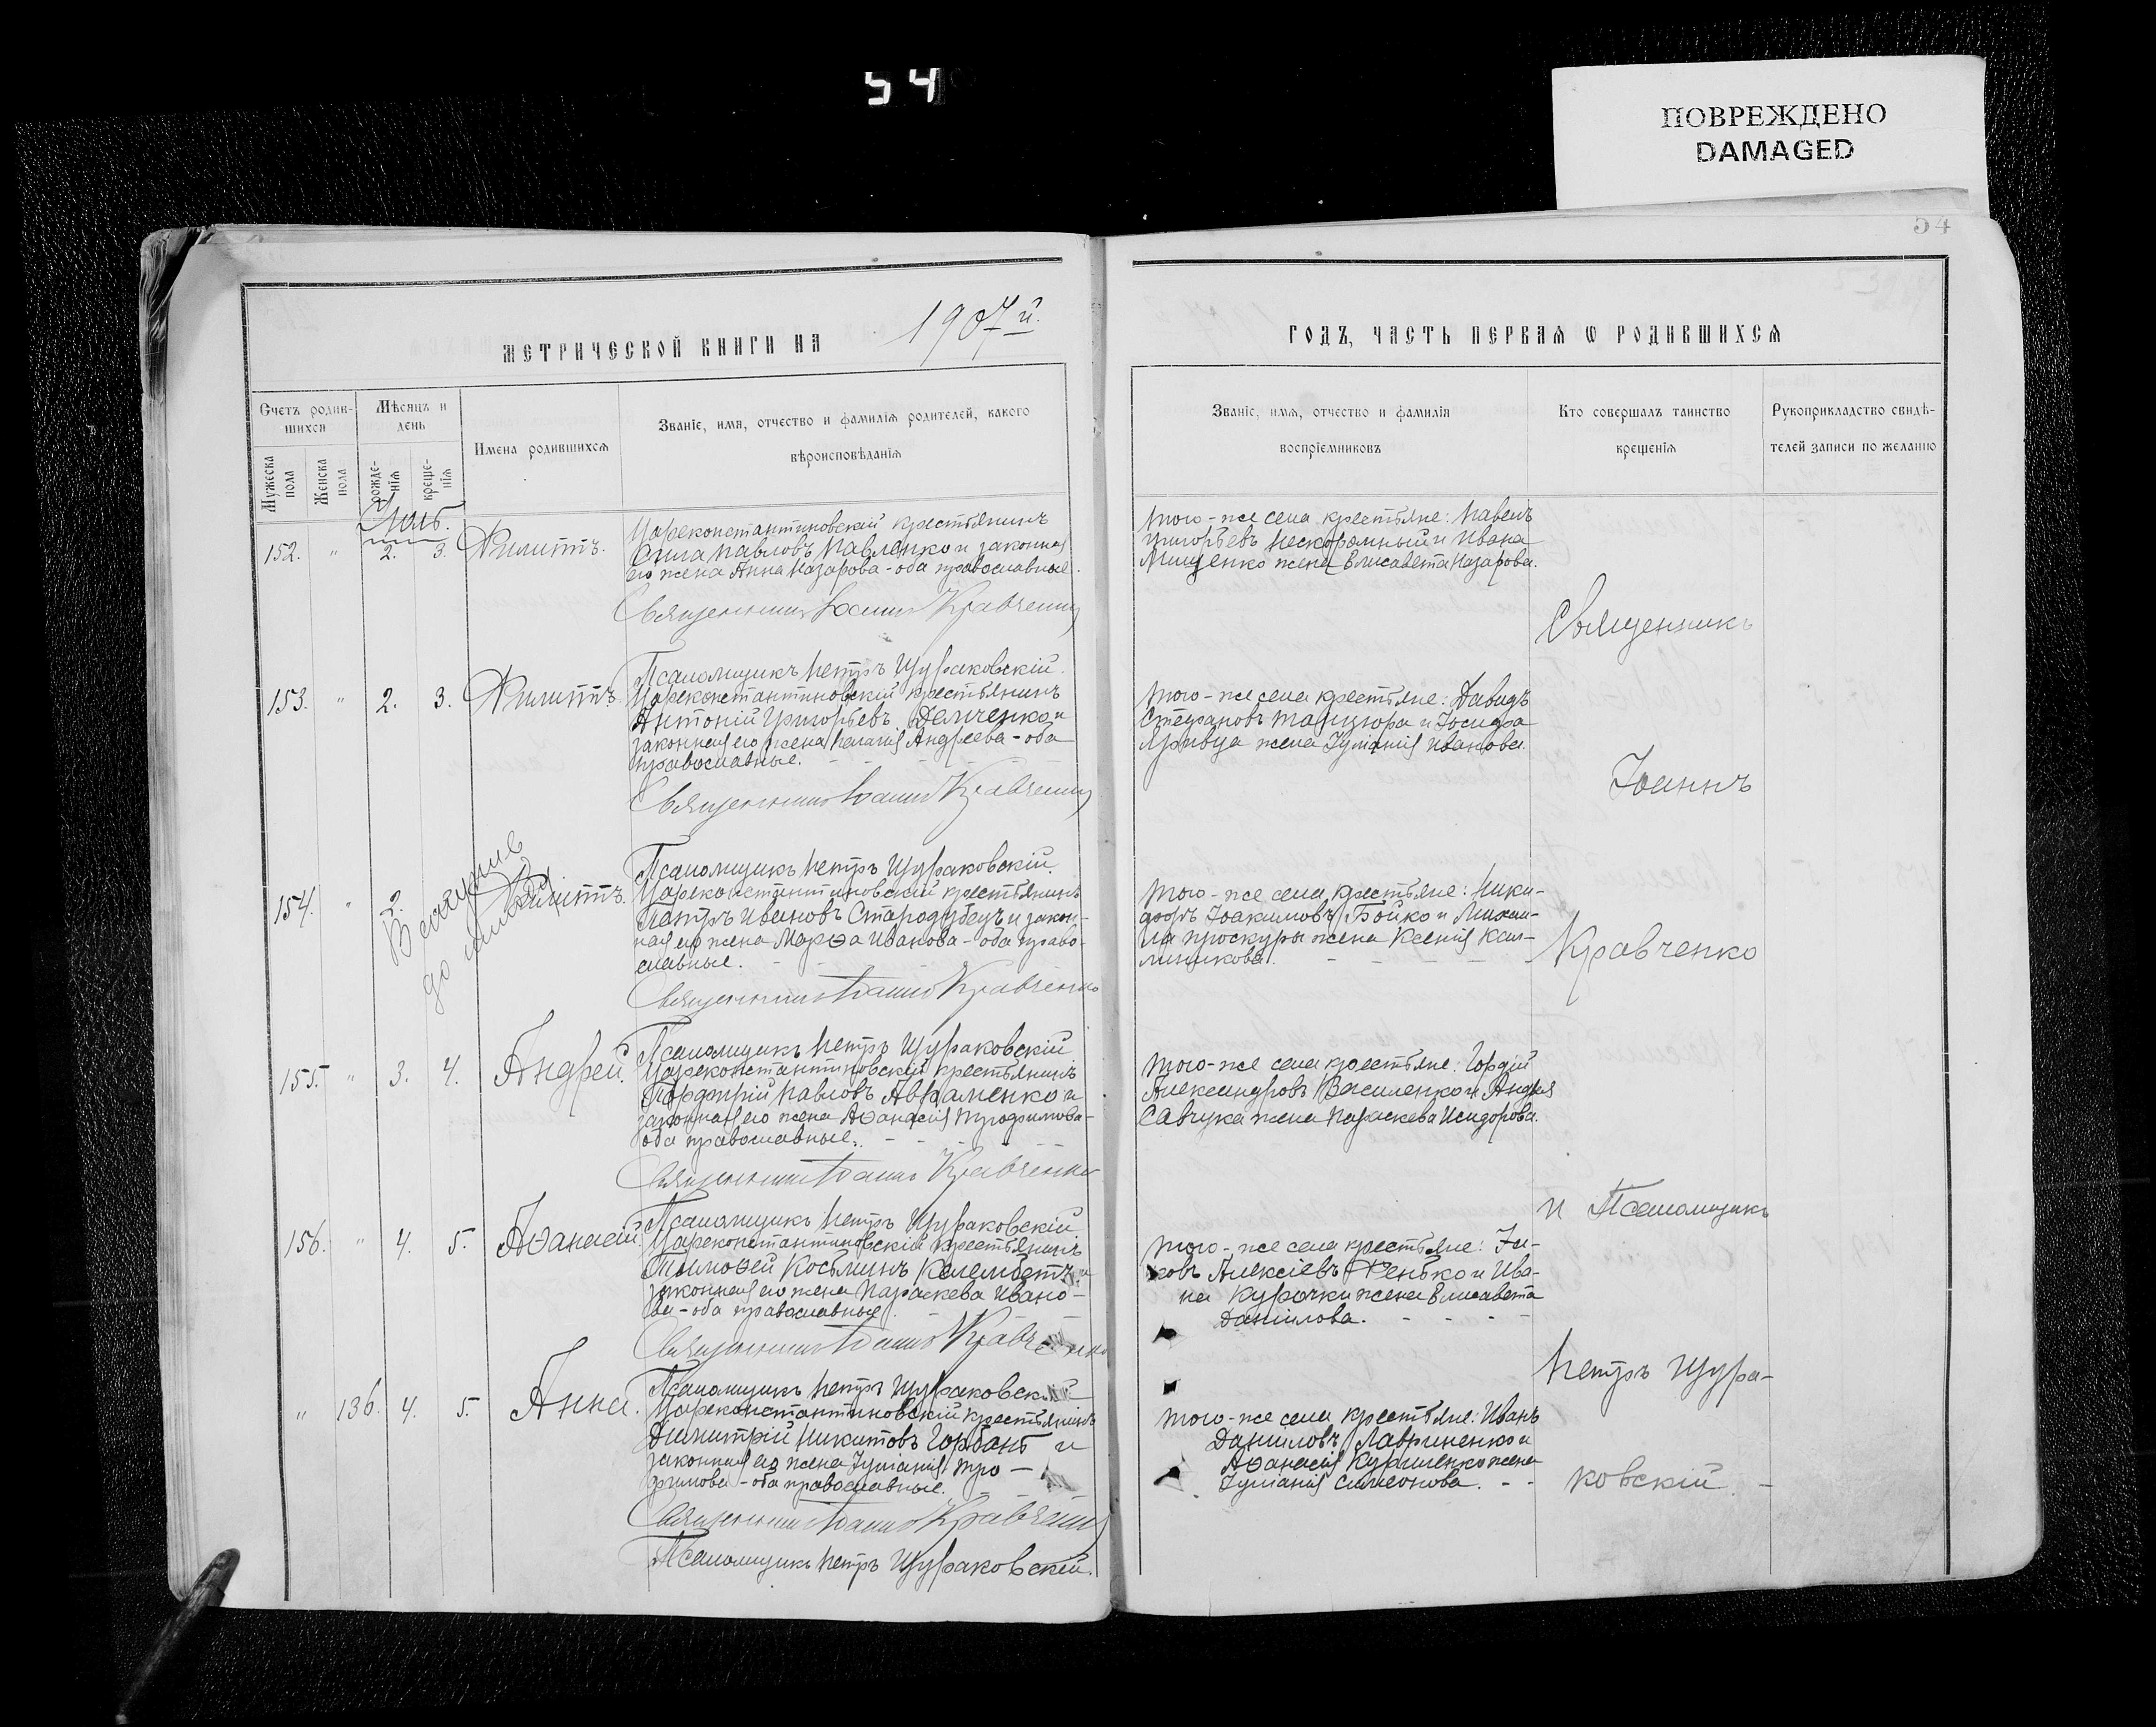 54
ПОВРЕЖДЕНО
DAMAGED
54
МЕТРИЧЕСКОЙ КНИГИ НА 1907 й.
Счетъ родив-
шихся
Мѣсяцъ и
день
Имена родившихся
Званіе, имя, отчество и фамилія родителей, какого
вѣроисповѣданія
Мужеска
пола
Женска
пола
рожде-
нія
креще-
нія
152. " 2. 3. Филиппъ.
Цареконстантиновскій крестьянинъ
Павловъ Павленко и законная
его жена Анна Назарова - оба православные.
Священникъ Іоаннъ Кравченко
Псаломщикъ Петръ Щураковскій.
153. " 2. 3. Филиппъ.
Цареконстантиновскій крестьянинъ
Антоній Григорьевъ Демченко и
законная его жена Пелагія Андреева - оба
православные.
Священникъ Іоаннъ Кравченко
Псаломщикъ Петръ Щураковскій.
154. " 2. Филиппъ.
Цареконстантиновскій крестьянинъ
Петръ Ивановъ Стародубецъ и закон-
ная его жена Марѳа Иванова - оба право-
славные.
Священникъ Іоаннъ Кравченко
Псаломщикъ Петръ Щураковскій
155. " 3. 4. Андрей.
Цареконстантиновскій крестьянинъ
Порфирій Павловъ Авраменко и
законная его жена Аѳанасія Трофимова -
оба православные.
Священникъ Іоаннъ Кравченко
Псаломщикъ Петръ Щураковскій
156. " 4. 5. Аѳанасій.
Цареконстантиновскій крестьянинъ
Тимоѳей Косьминъ Келембетъ и
законная его жена Параскева Ивано-
ва - оба православные.
Священникъ Іоаннъ Кравченко
Псаломщикъ Петръ Щураковскій
" 136. 4. 5. Анна.
Цареконстантиновскій крестьянинъ
Димитрій Никитовъ Горбань и
законная его жена Іуліанія Тро-
фимова - оба православные.
Священникъ Іоаннъ Кравченко
Псаломщикъ Петръ Щураковскій.
ГОДЪ, ЧАСТЬ ПЕРВАЯ Ѡ РОДИВШИХСЯ
Званіе, имя, отчество и фамилія
воспріемниковъ
Кто совершалъ таинство
крещенія
Рукоприкладство свидѣ-
телей записи по желанію
Того-же села крестьяне: Павелъ
Григорьевъ Нескоромный и Ивана
Мищенко жена Елисавета Назарова.
Того-же села крестьяне: Давидъ
Стефановъ Танцюра и Іосифа
жена Іуліанія Иванова.
Того-же села крестьяне: Ники-
форъ Іоакимовъ Бойко и Михаи-
ла Проскуры жена Ксенія Кал-
линикова.
Того-же села крестьяне: Гордій
Александровъ Василенко и Андрея
Савчука жена Параскева Исидорова.
Того-же села крестьяне: Іа-
ковъ Алексіевъ Фенько и Ива-
на Курочки жена Елисавета
Даніилова.
Того-же села крестьяне: Иванъ
Даніиловъ Лавриненко и
Аѳанасія Куриленко жена
Іуліанія Симеонова.
Священникъ
Іоаннъ
Кравченко
и Псаломщикъ
Петръ Щура-
ковскій.